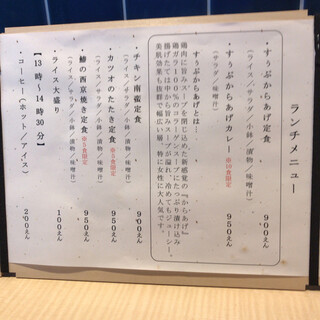 ランチメニュー
・すぅぷからあげ定食 900えん
(ライス／サラダ／小鉢／漬物／味噌汁)
・すぅぷからあげカレー 950えん
(サラダ／味噌汁)
すぅぷからあげとは…
鶏肉に旨みスープを閉じ込めた新感覚の『からあげ』
鶏ガラ100％のコラーゲンスープにたっぷり漬け込み
揚げたては中から旨みスープが溢れ、冷めてもジューシー。
美肌効果も抜群で幅広い層、特に女性に大人気です。
・チキン南蛮定食 900えん
(ライス／サラダ／小鉢／漬物／味噌汁)
・カツオのたたき定食 950えん
(ライス／サラダ／小鉢／漬物／味噌汁)
・鯵の西京焼き定食 950えん
(ライス／サラダ／小鉢／漬物／味噌汁)
・ライス大盛り 100えん
【13時～14時30分】
・コーヒー(ホット／アイス) 200えん